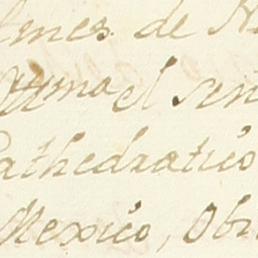 lmes de
Yllmo el Señ
Cathedratico
Mexico, Obi